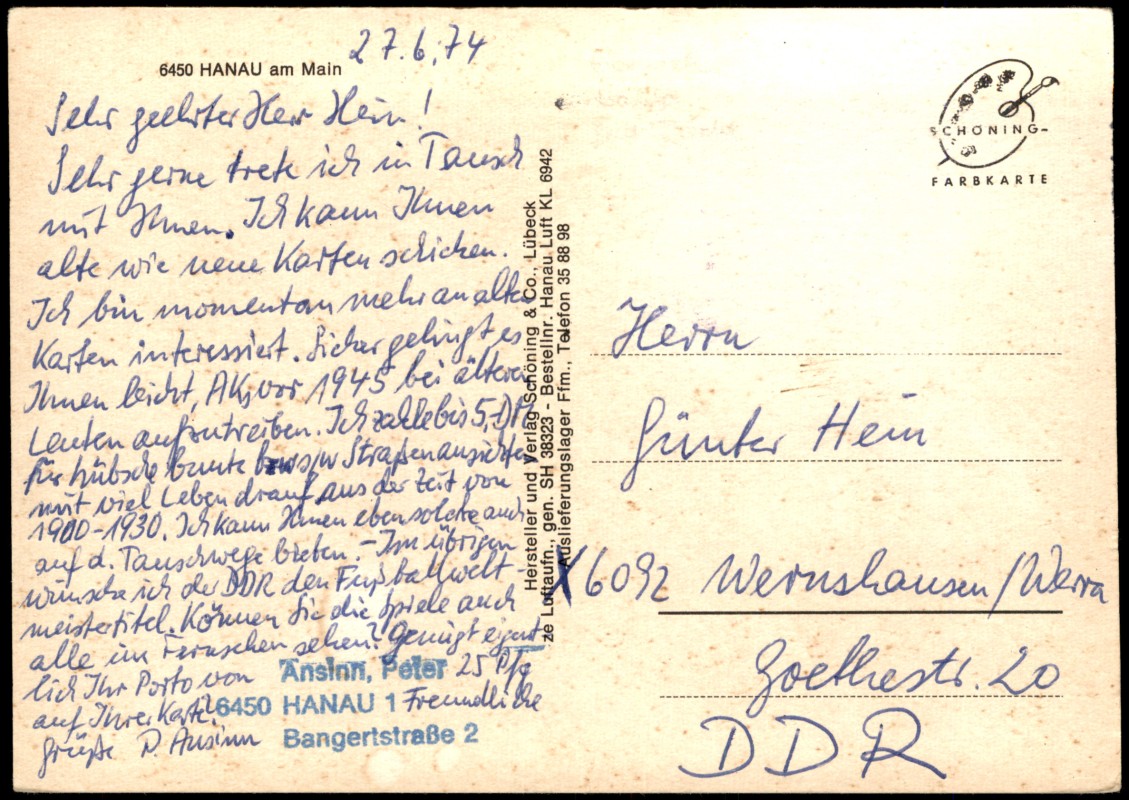 27.6.74
6450 HANAU am Main
Sehr geehrter Herr Hein!
Sehr gerne trete ich in Tausch
mit Ihnen. Ich kann Ihnen
alte wie neue Karten schicken.
Ich bin momentan mehr an alten
Karten interessiert. Sicher gelingt es
Ihnen leicht, AK, vor 1945 bei älteren
Leuten aufzutreiben. Ich zahle bis 5,-DM
für hübsche bunte bzw s/w Straßenansichten
mit viel Leben drauf aus der Zeit von
1900-1930. Ich kann Ihnen ebensolche auch
auf d. Tauschwege bieten. - Im übrigen
wünsche ich der DDR den Fußballwelt-
meistertitel. Können Sie die Spiele auch
alle im Fernsehen sehen? Genügt eigent-
lich Ihr Porto von 25 Pfg
auf Ihrer Karte? Freundliche
Grüße P. Ansinn
Ansinn, Peter
6450 HANAU 1
Bangertstraße 2
Hersteller und Verlag Schöning & Co., Lübeck
ze Luftaufn., gen. SH 38323 - Bestellnr. Hanau Luft KL 6942
Auslieferungslager Ffm., Telefon 35 88 98
SCHÖNING-
FARBKARTE
Herrn
Günter Hein
X6092 Wernshausen/Werra
Goethestr. 20
DDR